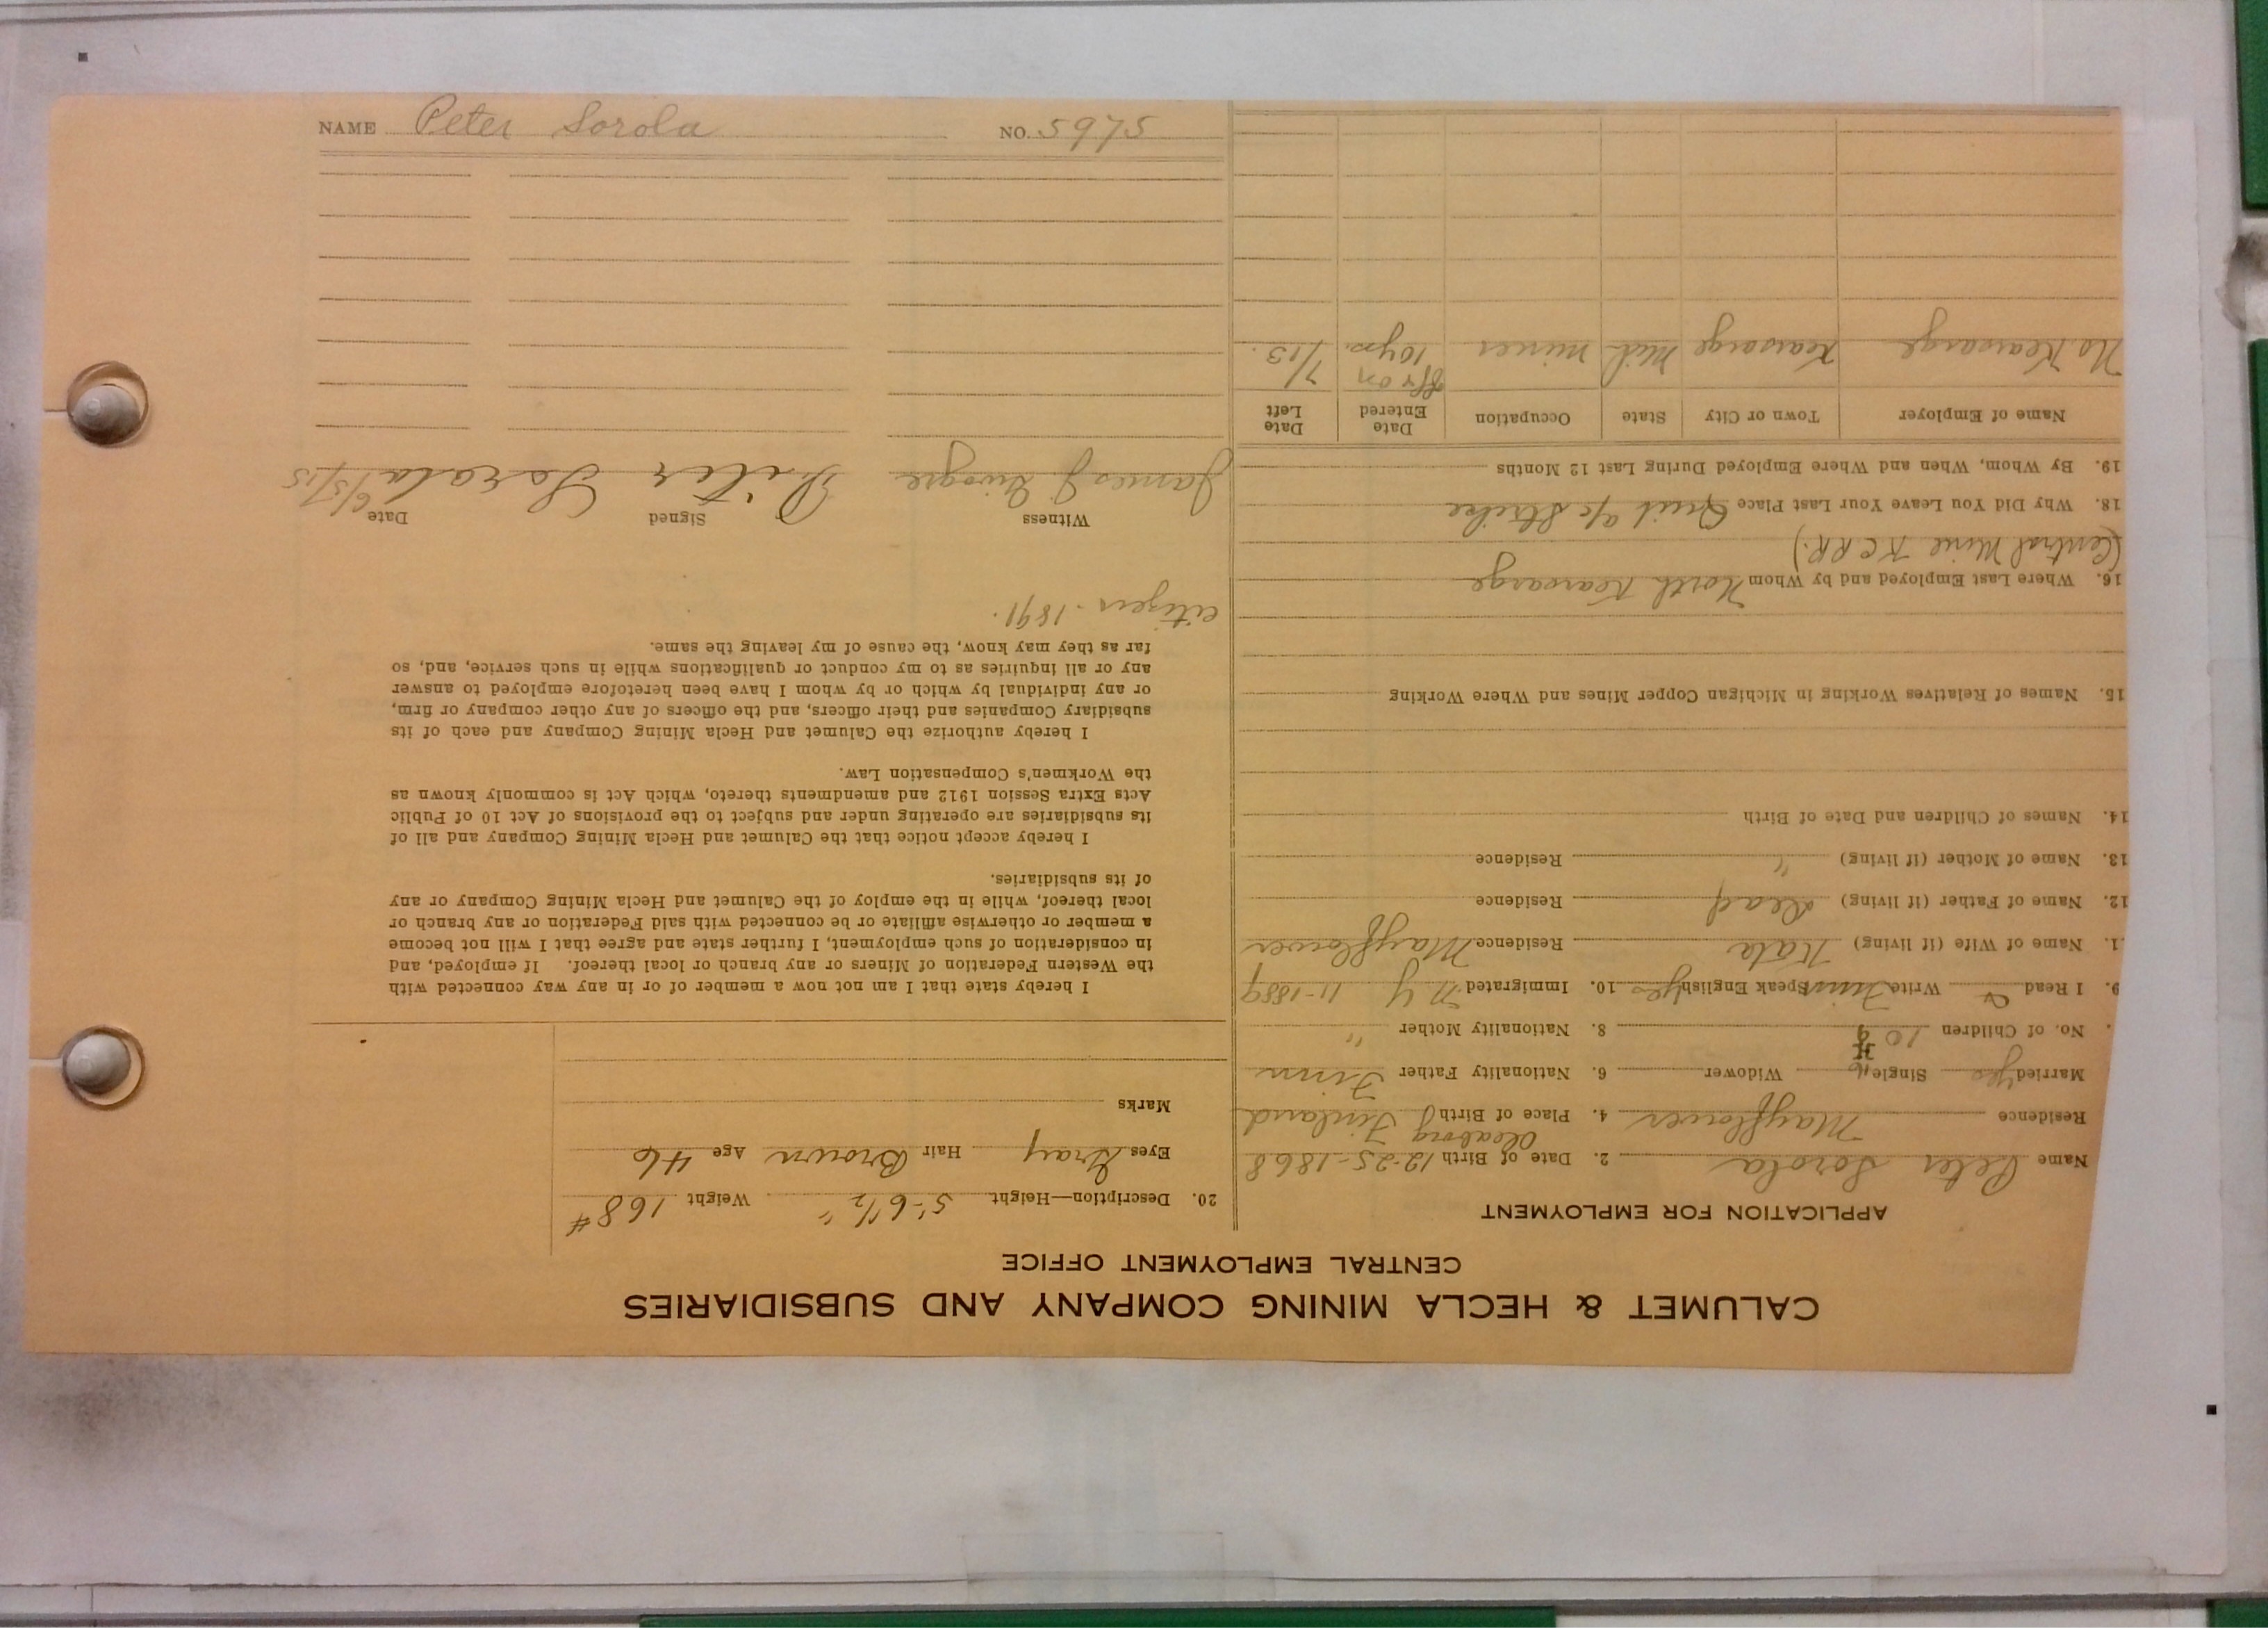 NAME Peter Sorola NO. 5975
CALUMET & HECLA MINING COMPANY AND SUBSIDIARIES
CENTRAL EMPLOYMENT OFFICE
APPLICATION FOR EMPLOYMENT
Name Peter Sorola 2. Date of Birth 12-25-1868
Residence Mayflower 4. Place of Birth Uleaborg Finland
Married yes Single Widower 6. Nationality Father Finn
No. of Children 10 8. Nationality Mother "
9. I Read & Write Finn Speak English yes 10. Immigrated N Y 11-1889
1. Name of Wife (if living) Kate Residence Mayflower
12. Name of Father (if living) dead Residence
13. Name of Mother (if living) " Residence
14. Names of Children and Date of Birth
15. Names of Relatives Working in Michigan Copper Mines and Where Working
16. Where Last Employed and by Whom North Kearsarge
(Central Mine K C R R.)
18. Why Did You Leave Your Last Place Quit a/c Strike
19. By Whom, When and Where Employed During Last 12 Months
Name of Employer Town or City State Occupation Date Entered Date Left
No. Kearsarge Kearsarge Mich miner off & on 10 yrs. 7/13.
20. Description—Height 5'-6 1/2" Weight 168#
Eyes Gray Hair Brown Age 46
Marks
I hereby state that I am not now a member of or in any way connected with
the Western Federation of Miners or any branch or local thereof. If employed, and
in consideration of such employment, I further state and agree that I will not become
a member or otherwise affiliate or be connected with said Federation or any branch or
local thereof, while in the employ of the Calumet and Hecla Mining Company or any
of its subsidiaries.
I hereby accept notice that the Calumet and Hecla Mining Company and all of
its subsidiaries are operating under and subject to the provisions of Act 10 of Public
Acts Extra Session 1912 and amendments thereto, which Act is commonly known as
the Workmen's Compensation Law.
I hereby authorize the Calumet and Hecla Mining Company and each of its
subsidiary Companies and their officers, and the officers of any other company or firm,
or any individual by which or by whom I have been heretofore employed to answer
any or all inquiries as to my conduct or qualifications while in such service, and, so
far as they may know, the cause of my leaving the same.
citizen - 1891.
Witness Signed Date
James J. Piter Sorala 6/5/15